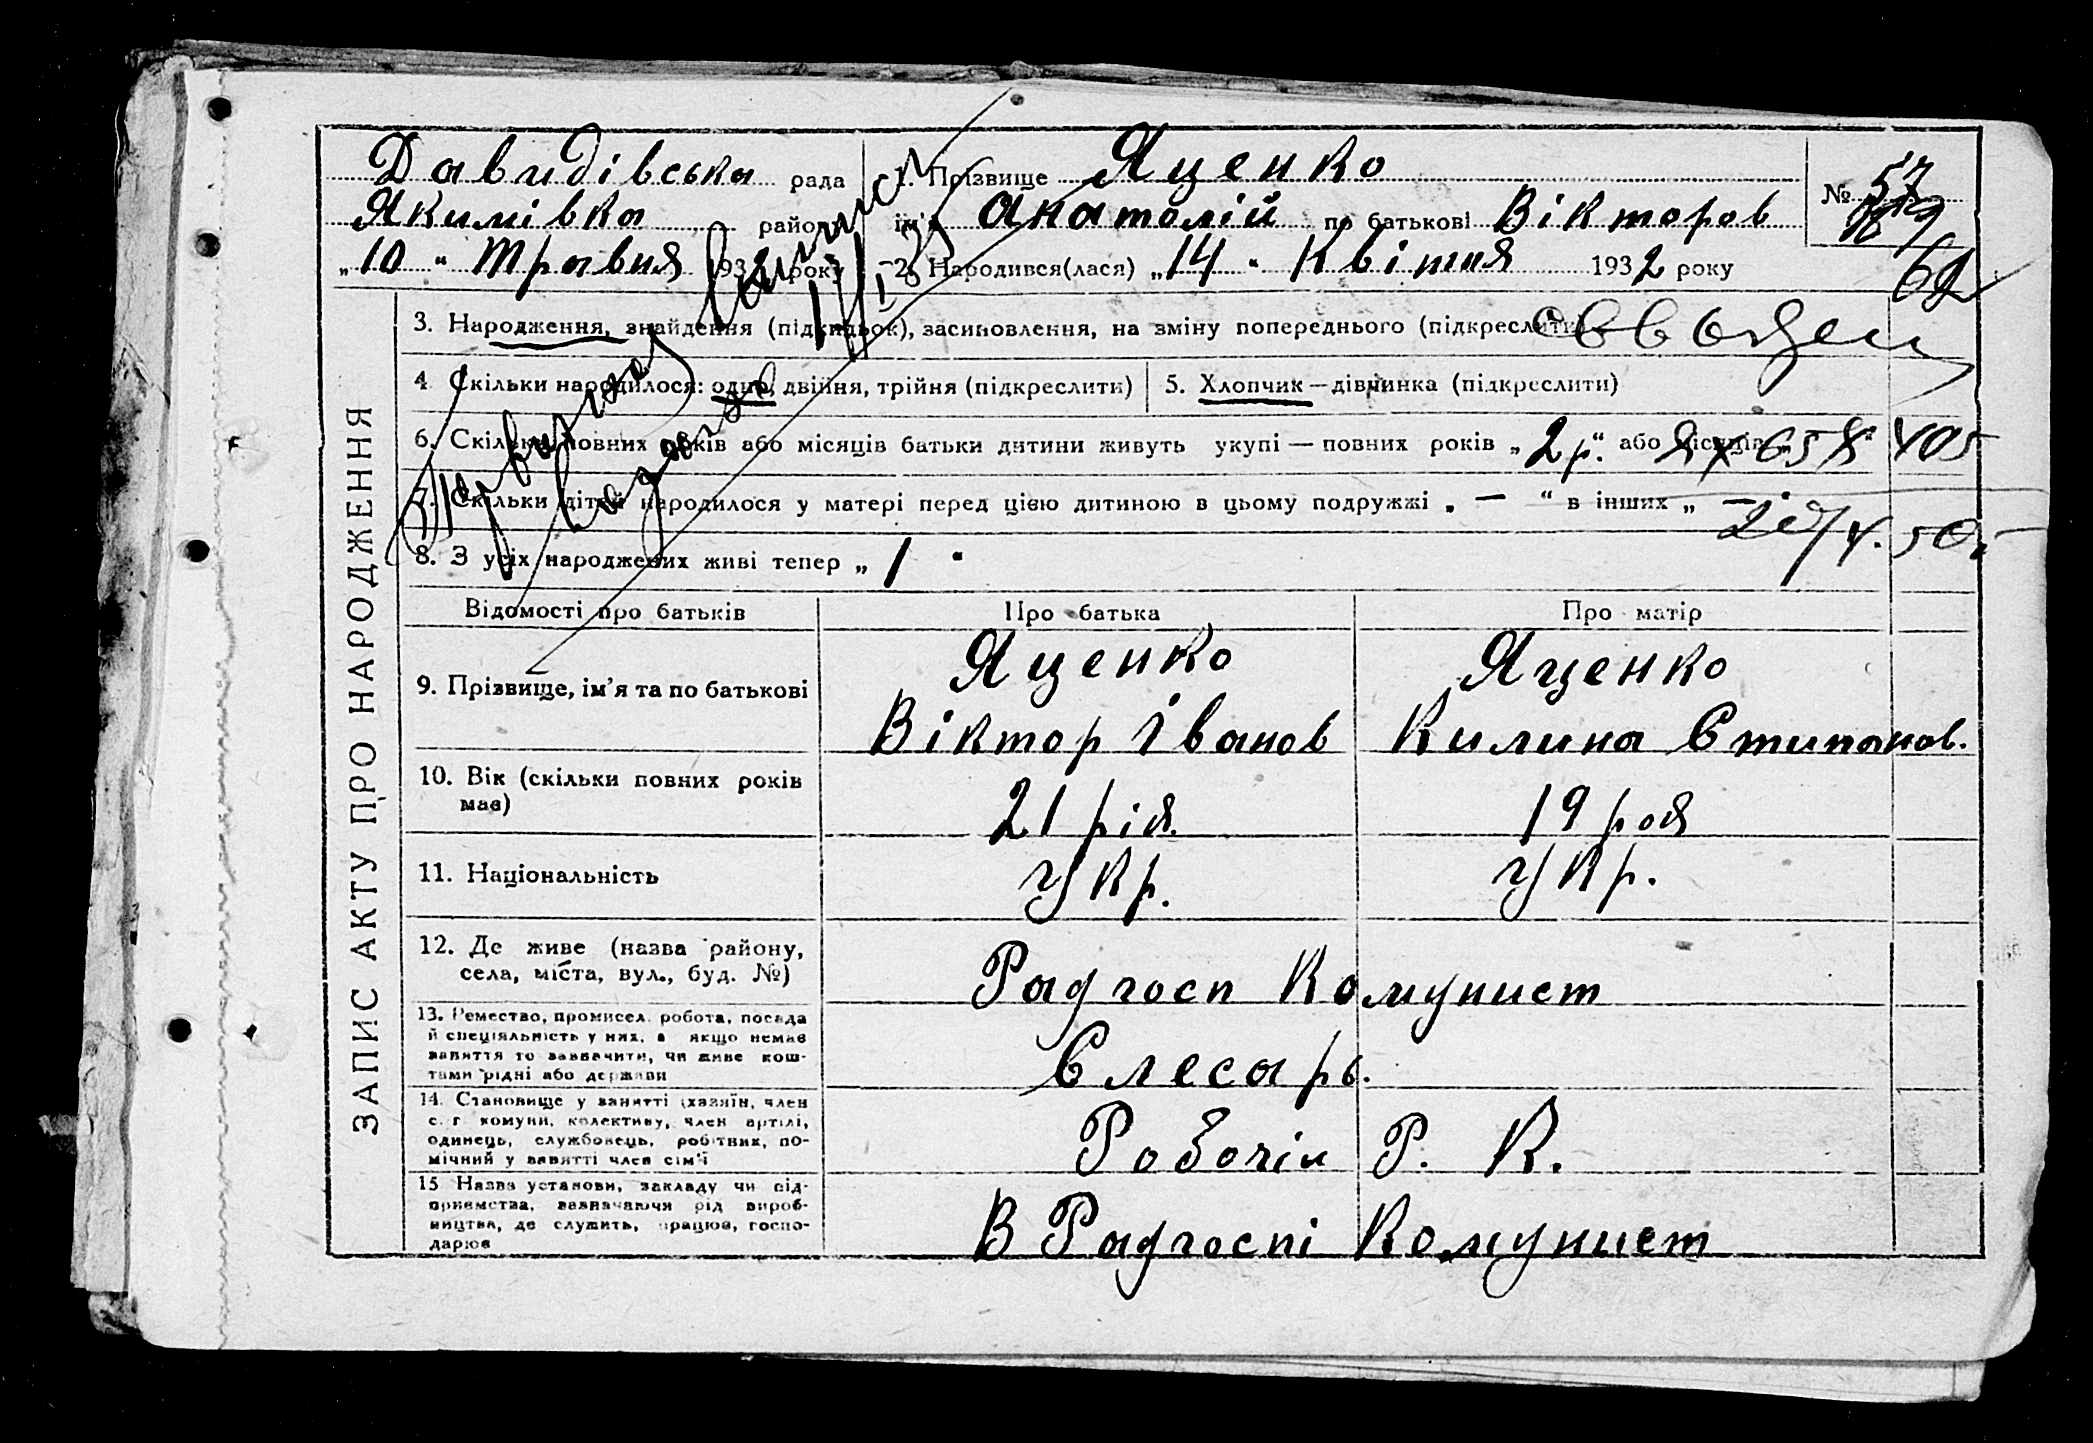 Давидівська рада
Якимівка район
„10“ Травня 1932 року
1. Прізвище Яценко
ім'я Анатолій по батькові Вікторов
2. Народився(лася) „14“ Квітня 1932 року
№ 57
62
3. Народження, знайдення (підкидьок), засиновлення, на зміну попереднього (підкреслити)
4. Скільки народилося: одно, двійня, трійня (підкреслити)
5. Хлопчик — дівчинка (підкреслити)
6. Скільки повних років або місяців батьки дитини живуть укупі — повних років „2 р.“ або місяців
7. Скільки дітей народилося у матері перед цією дитиною в цьому подружжі „ — “ в інших „ —
8. З усіх народжених живі тепер „ 1 “
ЗАПИС АКТУ ПРО НАРОДЖЕННЯ
Відомості про батьків
Про батька
Про матір
9. Прізвище, ім'я та по батькові
Яценко
Віктор Іванов
Яценко
Килина Стипанов.
10. Вік (скільки повних років
має)
21 рід.
19 род
11. Національність
Укр.
Укр.
12. Де живе (назва району,
села, міста, вул., буд. №)
Радгосп Комунист
13. Ремество, промисел, робота, посада
й спеціяльність у них, а якщо немає
заняття то зазначити, чи живе кош-
тами рідні або держави
Слесарь.
14. Становище у занятті (хазяїн, член
с. г. комуни, колективу, член артілі,
одинець, службовець, робітник, по-
мічний у занятті член сім'ї
Робочій Р. К.
15 Назва установи, закладу чи під-
приємства, зазначаючи рід вироб-
ництва, де служить, працює, госпо-
дарює
В Радгоспі Комунист